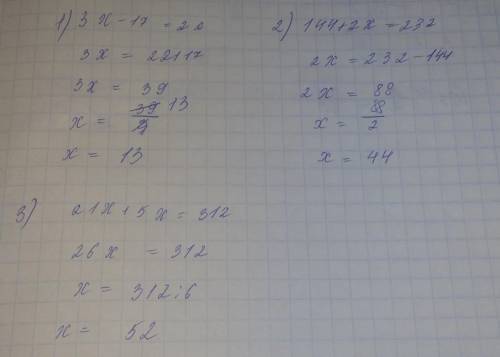 1) 3x - 17 = 22
3x = 22+17
3x = 39
x = 39/3 13
x = 13
2) 144+2x = 232
2x = 232-144
2x = 88
x = 88/2
x = 44
3) 21x + 5x = 312
26x = 312
x = 312:6
x = 52